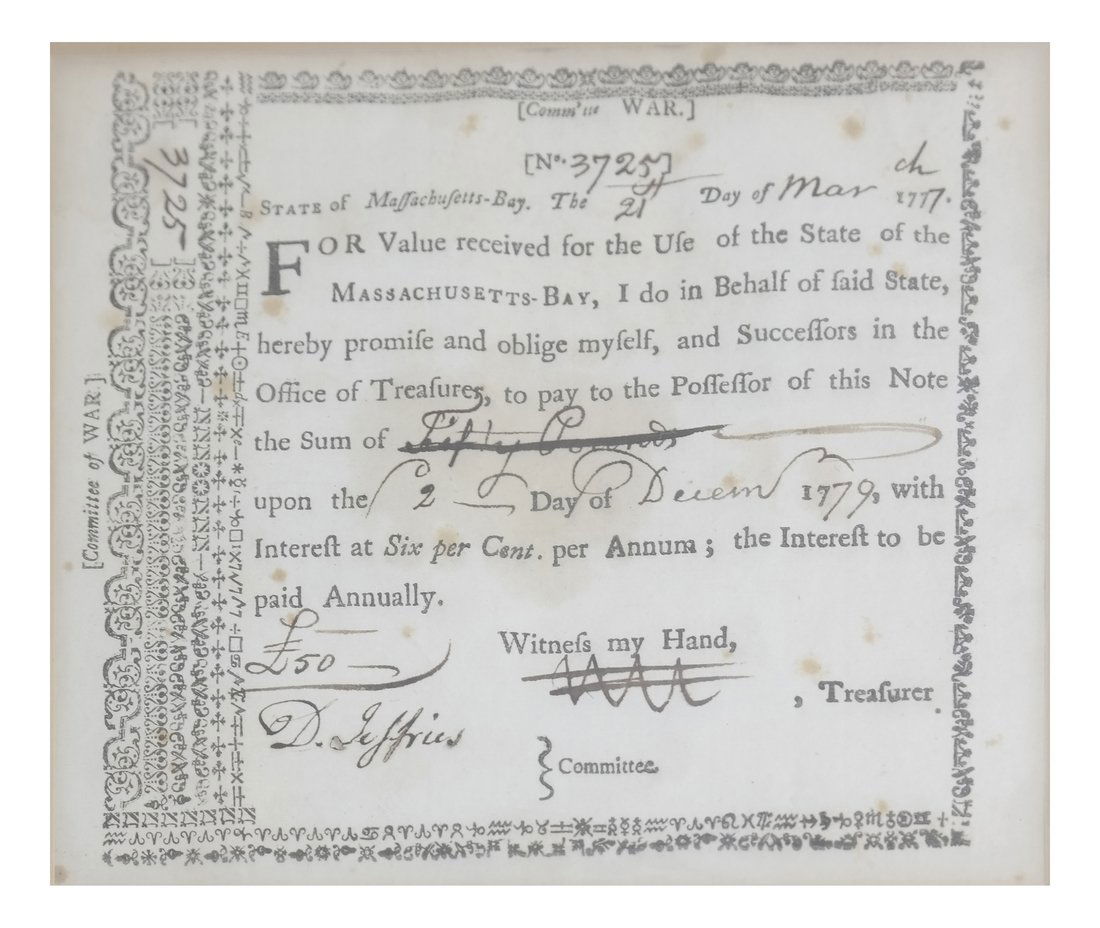 [Comm'tte WAR.]
[No. 3725]
STATE of Maſſachuſetts-Bay. The 21st Day of March 1777.
FOR Value received for the Uſe of the State of the
MASSACHUSETTS-BAY, I do in Behalf of ſaid State,
hereby promiſe and oblige myſelf, and Succeſſors in the
Office of Treaſurer, to pay to the Poſſeſſor of this Note
the Sum of Fifty Pounds
upon the 2 Day of Decem 1779, with
Intereſt at Six per Cent. per Annum; the Intereſt to be
paid Annually.
£50
Witneſs my Hand,
, Treaſurer.
D. Jeffries
Committee.
[Committee of WAR.]
[3725]